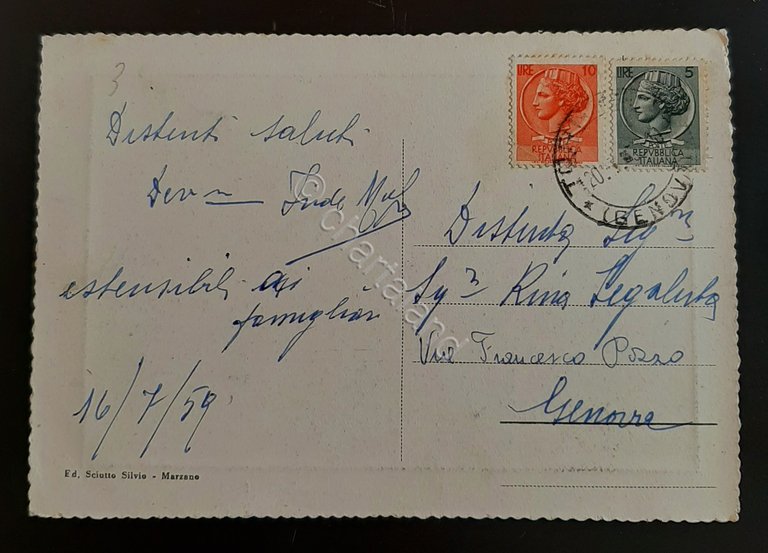 3
Distinti saluti
Dev
estensibili ai
famigliari
16/7/59
Ed. Sciutto Silvio - Marzano
LIRE 10
REPVBBLICA
ITALIANA
LIRE 5
REPVBBLICA
ITALIANA
(GENOVA)
Distinta Sigra
Rina
Via Francesco Pozzo
Genova
© chartaland